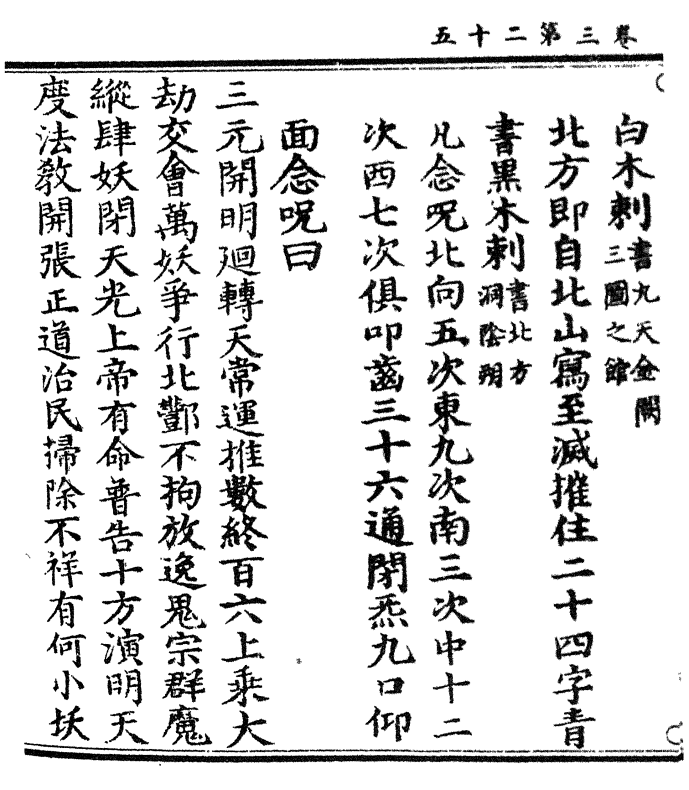 卷三第二十五
白木刺書九天金闕三圖之館
北方即自北山寫至滅摧住二十四字青
書黑木刺書北方洞陰朔
凡念呪北向五次東九次南三次中十二
次西七次俱叩齒三十六通閉炁九口仰
面念呪曰
三元開明迴轉天常運推數終百六上乘大
劫交會萬妖爭行北酆不拘放逸鬼宗群魔
縱肆妖閉天光上帝有命普告十方演明天
度法教開張正道治民掃除不祥有何小妖